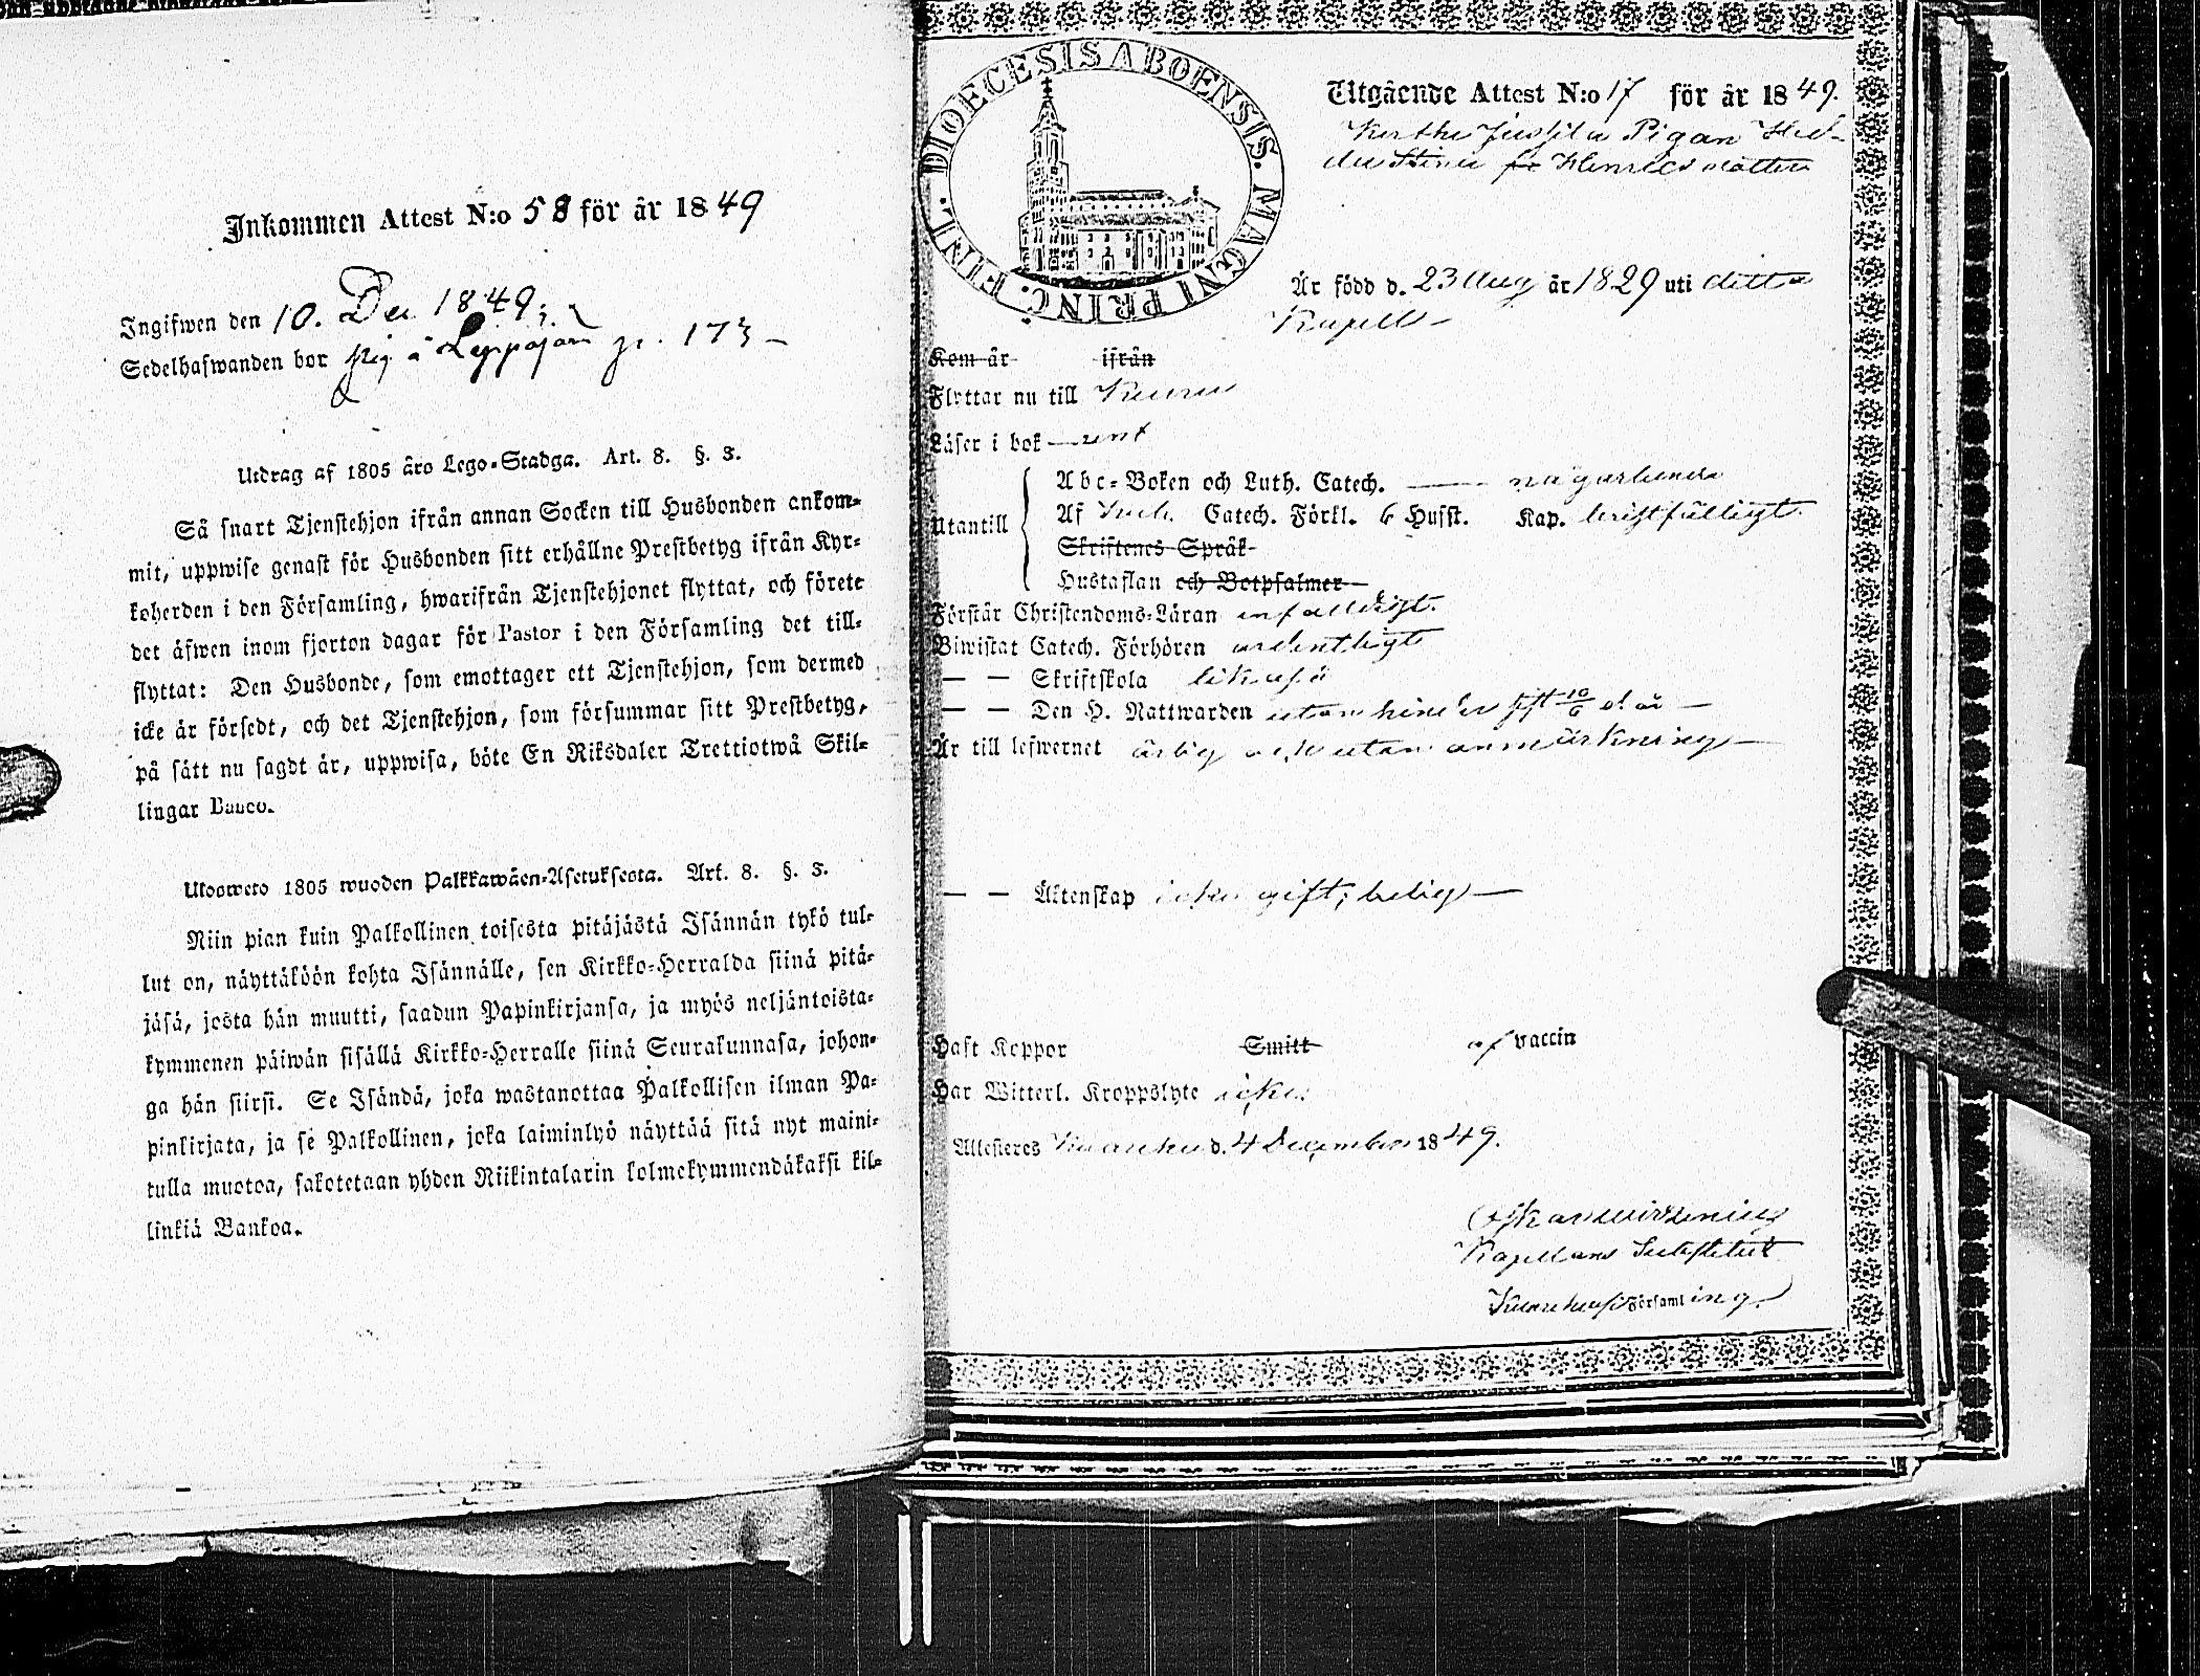 Inkommen Attest N:o 58 för år 1849
Ingifwen den 10. Dec 1849;
Sedelhafwanden bor pig å Leppäjärvi p. 173 –
Utdrag af 1805 års Lego-Stadga. Art. 8. §. 3.
Så snart Tjenstehjon ifrån annan Socken till Husbonden ankom-
mit, uppwise genast för Husbonden sitt erhållne Prestbetyg ifrån Kyr-
koherden i den Församling, hwarifrån Tjenstehjonet flyttat, och förete
det äfwen inom fjorton dagar för Pastor i den Församling det till-
flyttat: Den Husbonde, som emottager ett Tjenstehjon, som dermed
icke är försedt, och det Tjenstehjon, som försummar sitt Prestbetyg,
på sätt nu sagdt är, uppwisa, böte En Riksdaler Trettiotwå Skil-
lingar Banco.
Ulosweto 1805 wuoden Palkkawäen-Asetuksesta. Art. 8. §. 3.
Niin pian kuin Palkollinen toisesta pitäjästä Isännän tykö tul-
lut on, näyttäköön kohta Isännälle, sen Kirkko-Herralda siinä pitä-
jäsä, josta hän muutti, saadun Papinkirjansa, ja myös neljäntoista-
kymmenen päiwän sisällä Kirkko-Herralle siinä Seurakunnasa, johon-
ga hän siirsi. Se Isändä, joka wastanottaa Palkollisen ilman Pa-
pinkirjata, ja se Palkollinen, joka laiminlyö näyttää sitä nyt maini-
tulla muotoa, sakotetaan yhden Riikintalarin kolmekymmendäkaksi kil-
linkiä Bankoa.
DIOECESIS ABOENSIS. MAGNI PRINC. FINL.
Utgående Attest N:o 17 för år 1849.
Pigan Hed-
Henricsdotter
Är född d. 23 Aug år 1829 uti detta
Kapell –
Kom år ifrån
Flyttar nu till Keuru
Läser i bok – rent
Utantill
Abc-Boken och Luth. Catech. –
Af Catech. Förkl. 6 Husst. Kap. bristfälligt.
Skriftenes Språk
Hustaflan och Botpsalmer
Förstår Christendoms-Läran enfalldigt.
Biwistat Catech. Förhören ordentligt
– – Skriftskola likaså
– – Den H. Nattwarden utan hinder sist 10/6 d. å –
Är till lefwernet ärlig och utan anmärkning –
– – Äktenskap icke gift; ledig –
Haft Koppor Smitt af vaccin
Har Witterl. Kroppslyte icke.
Attesteres d. 4 December 1849.
Kapellans Substitut
Församling